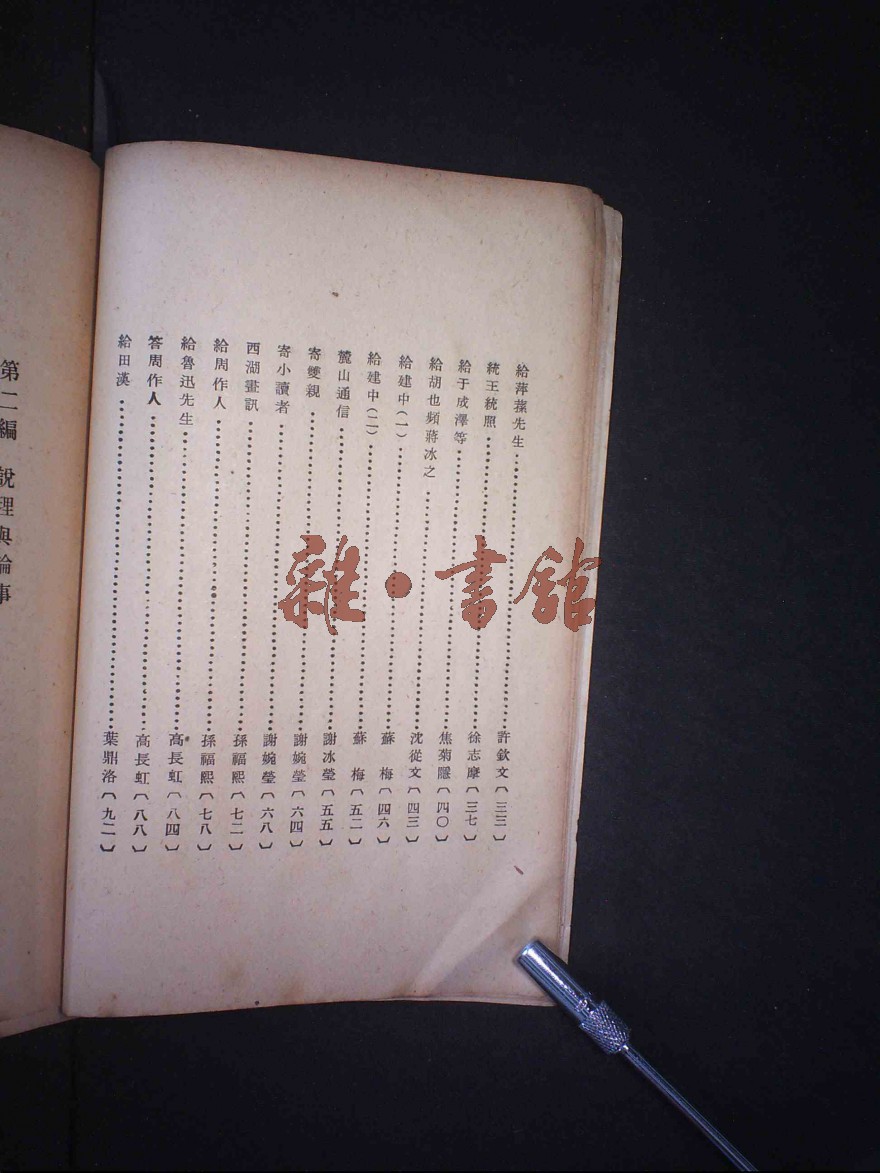 給萍蓀先生…………許欽文〔三三〕
統王統照…………徐志摩〔三七〕
給于成澤等…………焦菊隱〔四〇〕
給胡也頻蔣冰之…………沈從文〔四三〕
給建中(一)…………蘇梅〔四六〕
給建中(二)…………蘇梅〔五二〕
麓山通信…………謝冰瑩〔五五〕
寄雙親…………謝婉瑩〔六四〕
寄小讀者…………謝婉瑩〔六八〕
西湖畫訊…………孫福熙〔七二〕
給周作人…………孫福熙〔七八〕
給魯迅先生…………高長虹〔八四〕
答周作人…………高長虹〔八八〕
給田漢…………葉鼎洛〔九二〕
第二編 說理與論事
雜·書館